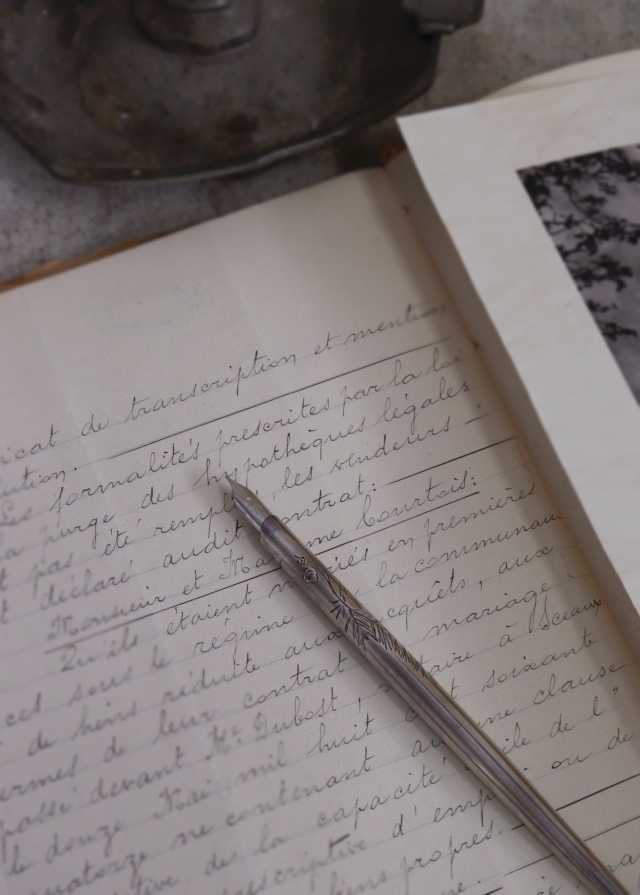 icat de transcription et mention
lution.
Les formalités prescrites par la loi
la purge des hypothèques légales
t pas été rempl les vendeurs
t déclaré audit ontrat:
Monsieur et Ma me Courtois:
Qu'ils étaient m riés en premières
ces sous le régime la communau
de biens réduite aux cquêts, aux
ermes de leur contrat mariage
passé devant Me Dubost, taire à Sceaux
le douze Mai mil huit c t soixante
quatorze ne contenant au ne clause
tive de la capacité ile de l'
escriptive d'emp ou de
biens propres.